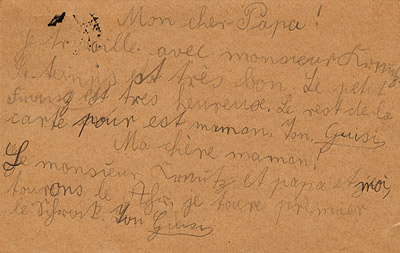 Mon cher Papa!
Je travaille avec monsieur
Le temps est tres bon. Le petit
Franz est tres heureux. Le rest de la
carte pour est maman. Ton. Guisi
Ma chère maman!
Le monsieur, et papa et moi,
tourons le je toure primier
le Ton Guisi